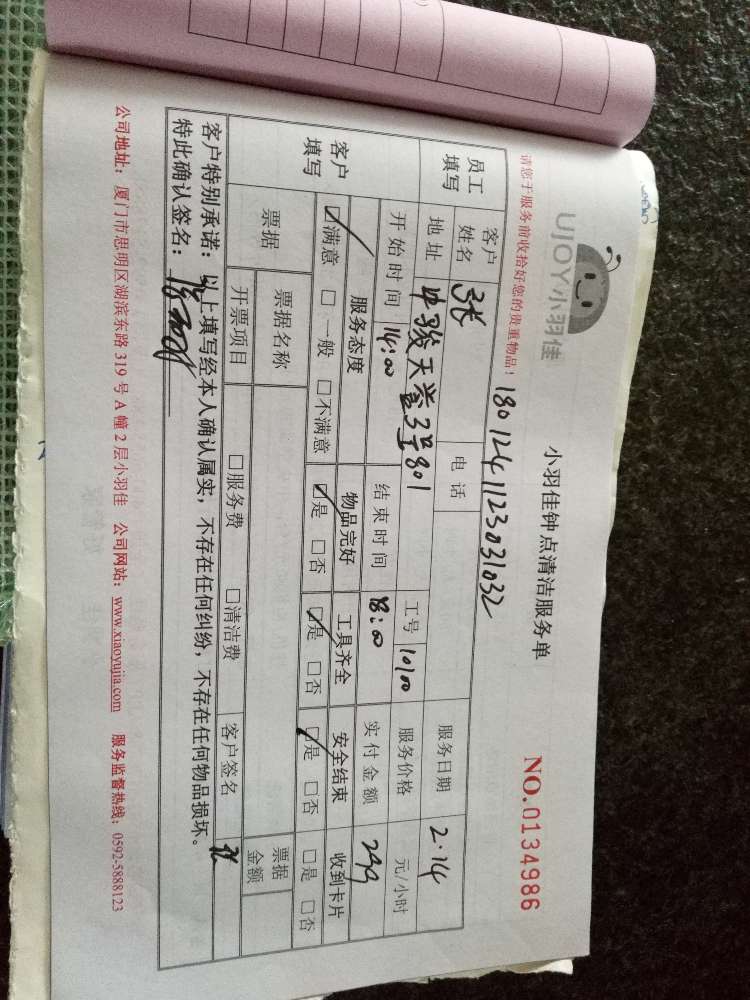 UJOY小羽佳
小羽佳钟点清洁服务单
NO.0134986
请您于服务前收拾好您的贵重物品！
1801241123031032
员工填写 客户姓名 电话 服务日期 2.14
地址 中骏天誉3号801 工号 10100 服务价格 元/小时
开始时间 14:00 结束时间 18:00 实付金额 299
客户填写 服务态度 物品完好 工具齐全 安全结束 收到卡片
☑满意 □一般 □不满意 ☑是 □否 ☑是 □否 ☑是 □否 □是 □否
票据 票据名称 票据金额
开票项目 □服务费 □清洁费 客户签名
客户特别承诺：以上填写经本人确认属实，不存在任何纠纷，不存在任何物品损坏。
特此确认签名：
公司地址：厦门市思明区湖滨东路319号A幢2层小羽佳 公司网站：www.xiaoyujia.com 服务监督热线：0592-5888123